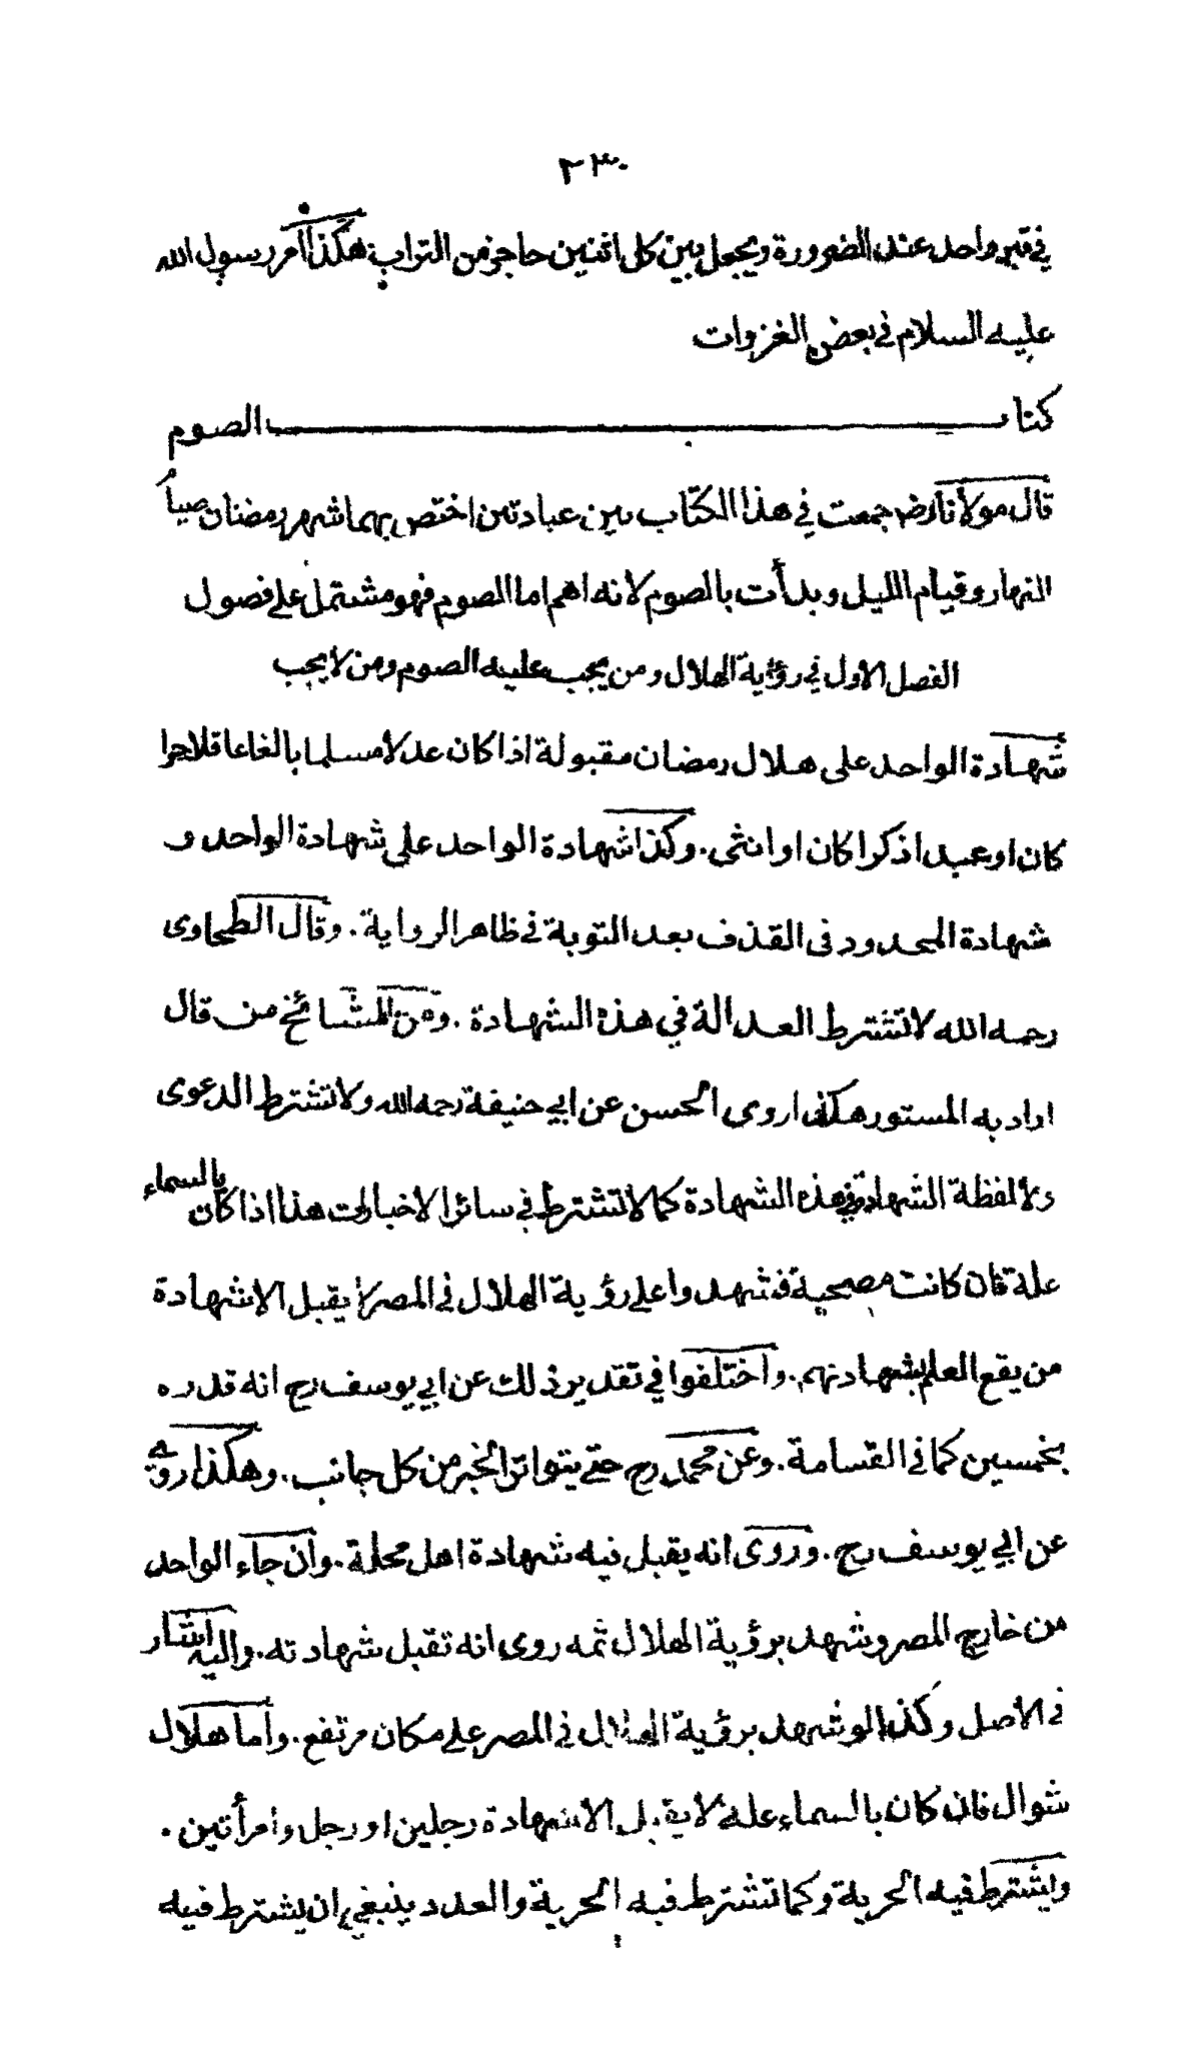 ٢٣٠
في قبر واحد عند الضرورة ويجعل بين كل اثنين حاجز من التراب هكذا امر رسول الله
عليه السلام في بعض الغزوات
كتاب الصوم
قال مولانا رض جمعت في هذا الكتاب بين عبادتين اختص بهما شهر رمضان صيام
النهار وقيام الليل وبدأت بالصوم لانه اهم اما الصوم فهو مشتمل على فصول
الفصل الاول في رؤية الهلال ومن يجب عليه الصوم ومن لا يجب
شهادة الواحد على هلال رمضان مقبولة اذا كان عدلا مسلما بالغا عاقلا حرا
كان او عبدا ذكرا كان او انثى . وكذا شهادة الواحد على شهادة الواحد و
شهادة المحدود في القذف بعد التوبة في ظاهر الرواية . وقال الطحاوى
رحمه الله لا تشترط العدالة في هذه الشهادة . ومن المشائخ من قال
اراد به المستور هكذا روى الحسن عن ابي حنيفة رحمه الله ولا تشترط الدعوى
ولا لفظة الشهادة في هذه الشهادة كما لا تشترط في سائر الاخبارات هذا اذا كان بالسماء
علة فان كانت مصحية فشهدوا على رؤية الهلال في المصر لا يقبل الا شهادة
من يقع العلم بشهادتهم . واختلفوا في تقدير ذلك عن ابي يوسف رح انه قدره
بخمسين كما في القسامة . وعن محمد رح حتى يتواتر الخبر من كل جانب . وهكذا روي
عن ابي يوسف رح . وروى انه يقبل فيه شهادة اهل محلة . وان جاء الواحد
من خارج المصر وشهد برؤية الهلال ثمه روى انه تقبل شهادته . واليه اشار
في الاصل وكذا لو شهد برؤية الهلال في المصر على مكان مرتفع . واما هلال
شوال فان كان بالسماء علة لا يقبل الا شهادة رجلين او رجل وامرأتين .
ويشترط فيه الحرية وكما تشترط فيه الحرية والعدد ينبغي ان يشترط فيه